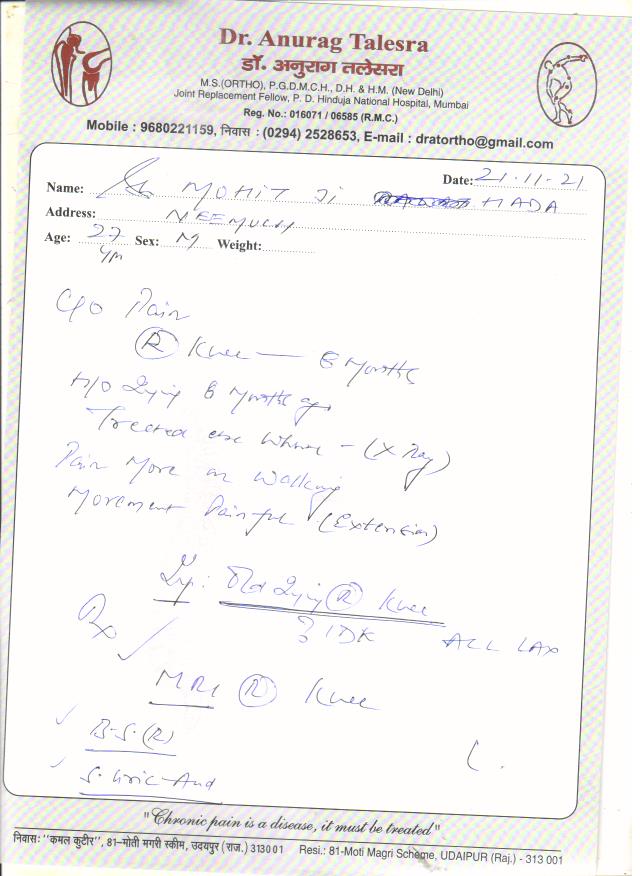 Dr. Anurag Talesra
डॉ. अनुराग तलेसरा
M.S.(ORTHO), P.G.D.M.C.H., D.H. & H.M. (New Delhi)
Joint Replacement Fellow, P. D. Hinduja National Hospital, Mumbai
Reg. No.: 016071 / 06585 (R.M.C.)
Mobile : 9680221159, निवास : (0294) 2528653, E-mail : dratortho@gmail.com
Date: 21.11.21
Name: MOHIT Ji HADA
Address: NEEMUCH
Age: 27 Sex: M Weight:
C/O Pain
(R) Knee — 6 Months
H/O Injury 6 Months ago
Treated else where - (X Ray)
Pain More on Walking
Movement Painful (Extension)
Imp: Old Injury (R) Knee
? IDK ACL LAX
Rx
MRI (R) Knee
B.S. (R)
S. Uric Acid
"Chronic pain is a disease, it must be treated"
निवासः "कमल कुटीर", 81–मोती मगरी स्कीम, उदयपुर (राज.) 313001 Resi.: 81-Moti Magri Scheme, UDAIPUR (Raj.) - 313 001